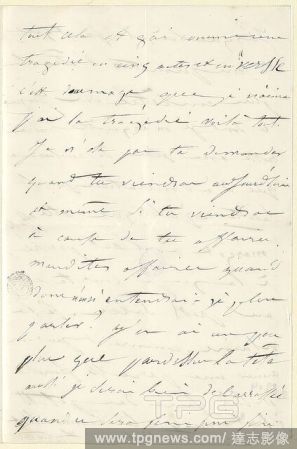 tout cela est gai comme une
tragédie en cinq actes et en vers. Si
c'est dommage que je n'aime
pas la tragédie voilà tout.
Je n'ose pas te demander
quand tu viendras aujourd'hui
et même si tu viendras
à cause de tes affaires.
maudites affaires quand
donc n'en entendrai-je plus
parler? J'en ai un peu
plus que pardessus la tête
et je serai bien
quand ce sera fini pour
TPG
www.tpgnews.com / 達志影像